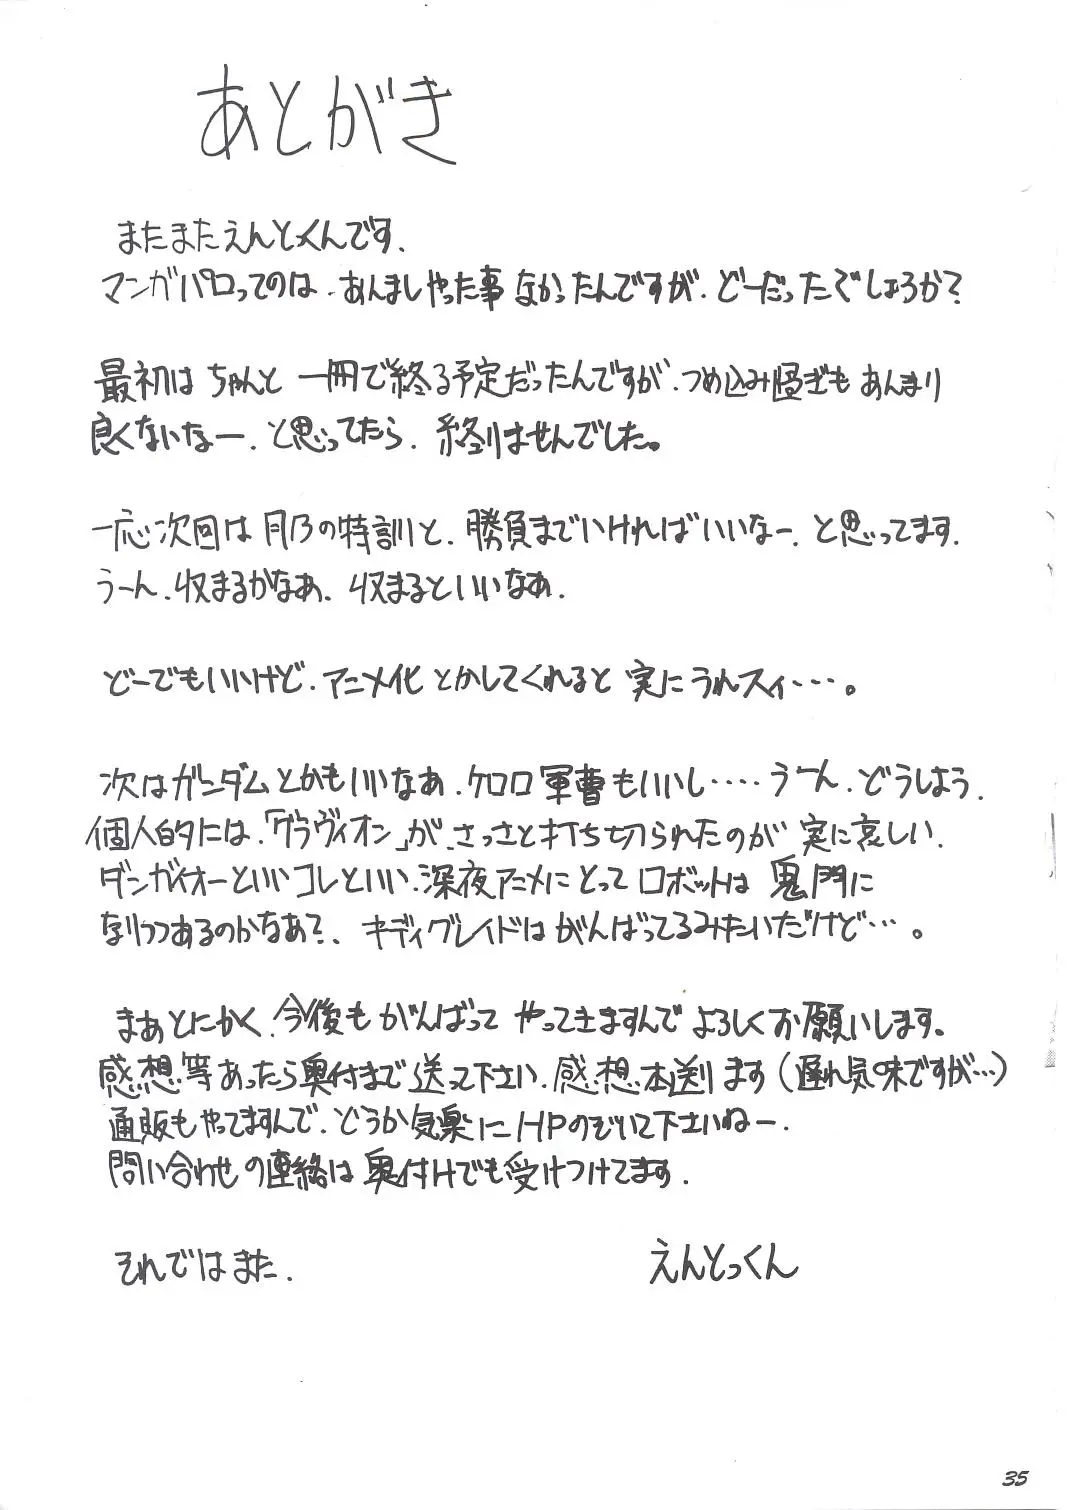 あとがき
またまたえんとくんです.
マンガパロってのは、あんましやった事なかったんですが、どーだったでしょうか?
最初はちゃんと一冊で終る予定だったんですが、つめ込み過ぎもあんまり
良くないなー、と思ってたら、終りませんでした。
一応次回は月乃の特訓と、勝負までいければいいなー、と思ってます.
うーん、収まるかなあ、収まるといいなあ.
どーでもいいけど、アニメ化とかしてくれると実にうれスィ・・・。
次はガンダムとかもいいなあ、ケロロ軍曹もいいし・・・・うーん、どうしよう.
個人的には、「グラヴィオン」が、さっさと打ち切られたのが実に哀しい.
ダンガイオーといいコレといい、深夜アニメにとってロボットは鬼門に
なりつつあるのかなあ?、キディグレイドはがんばってるみたいだけど・・・。
まあとにかく、今後もがんばってやってきますんでよろしくお願いします。
感想等あったら奥付まで送って下さい、感想本送ります(遅れ気味ですが・・・)
通販もやってますんで、どうか気楽にHPのぞいて下さいねー.
問い合わせの連絡は奥付けでも受けつけてます.
それではまた.
えんとっくん
35